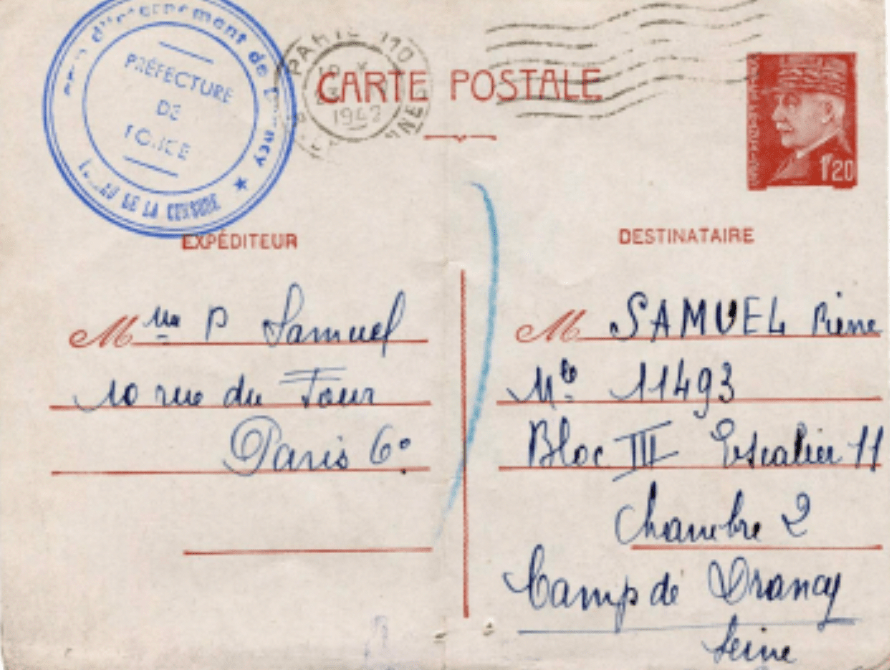 d'internement de Drancy
PRÉFECTURE
DE
POLICE
BUREAU DE LA CENSURE
PARIS 110
1942
CARTE POSTALE
1f20
EXPÉDITEUR
M me P Samuel
10 rue du Four
Paris 6e
DESTINATAIRE
M SAMUEL Pierre
Mle 11493
Bloc III Escalier 11
Chambre 2
Camp de Drancy
Seine